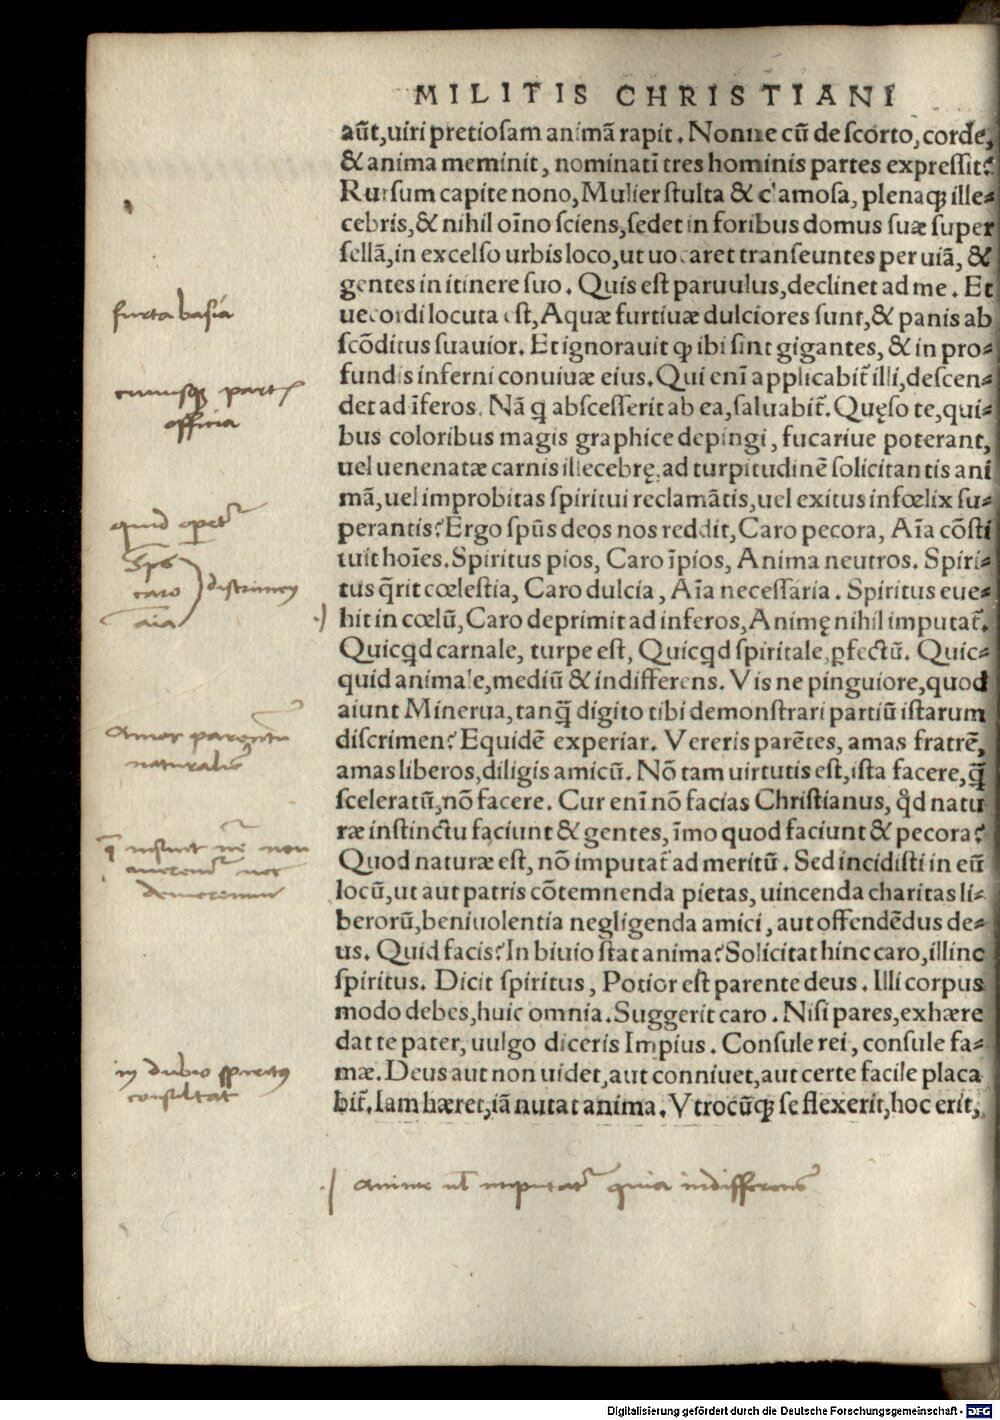 MILITIS CHRISTIANI
aūt,uiri pretiosam animā rapit. Nonne cū de scorto, corde,
& anima meminit, nominatī tres hominis partes expressit?
Rursum capite nono, Mulier stulta & clamosa, plenaqꝫ ille⸗
cebris,& nihil oīno sciens,sedet in foribus domus suæ super
sellā,in excelso urbis loco,ut uocaret transeuntes per uiā, &
gentes in itinere suo. Quis est paruulus,declinet ad me. Et
furta basia
uecordi locuta est,Aquæ furtiuæ dulciores sunt,& panis ab
scōditus suauior. Et ignorauit ꝙ ibi sint gigantes, & in pro⸗
fundis inferni conuiuæ eius. Qui enī applicabit̄ illi,descen⸗
cuiusqꝫ partis
officia
det ad īferos. Nā q abscesserit ab ea,saluabit̄. Quęso te,qui⸗
bus coloribus magis graphice depingi, fucariue poterant,
uel uenenatæ carnis illecebrę,ad turpitudinē solicitantis ani
mā,uel improbitas spiritui reclamātis,uel exitus infœlix su⸗
quid operet̄
perantis? Ergo spūs deos nos reddit, Caro pecora, Aīa cōsti
sp̄s
caro
aīa
discrimen
tuit hoīes. Spiritus pios, Caro īpios, Anima neutros. Spiri⸗
tus q̄rit cœlestia, Caro dulcia, Aīa necessaria. Spiritus eue⸗
hit in cœlū, Caro deprimit ad inferos, Animę nihil imputat̄.
Quicqd carnale, turpe est, Quicqd spiritale,ꝑfectū. Quic⸗
quid animale,mediū & indifferens. Vis ne pinguiore,quod
aiunt Minerua,tanq̄ digito tibi demonstrari partiū istarum
amor parentū
naturalis
discrimen? Equidē experiar. Vereris parētes, amas fratrē,
amas liberos,diligis amicū. Nō tam uirtutis est,ista facere,q̄
sceleratū,nō facere. Cur enī nō facias Christianus, qd natu
ræ instinctu faciunt & gentes, īmo quod faciunt & pecora?
Quod naturæ est, nō imputat̄ ad meritū. Sed incidisti in eū
locū,ut aut patris cōtemnenda pietas, uincenda charitas li⸗
berorū,beniuolentia negligenda amici, aut offendēdus de⸗
us. Quid facis? In biuio stat anima? Solicitat hinc caro,illinc
spiritus. Dicit spiritus, Potior est parente deus. Illi corpus
modo debes,huic omnia. Suggerit caro. Nisi pares,exhære
dat te pater, uulgo diceris Impius. Consule rei, consule fa⸗
in dubio spiritus
consultat
mæ. Deus aut non uidet,aut conniuet,aut certe facile placa
bit̄. Iam hæret,iā nutat anima. Vtrocūqꝫ se flexerit,hoc erit,
anime nl̄ imputat̄ quia indifferens
Digitalisierung gefördert durch die Deutsche Forschungsgemeinschaft - DFG